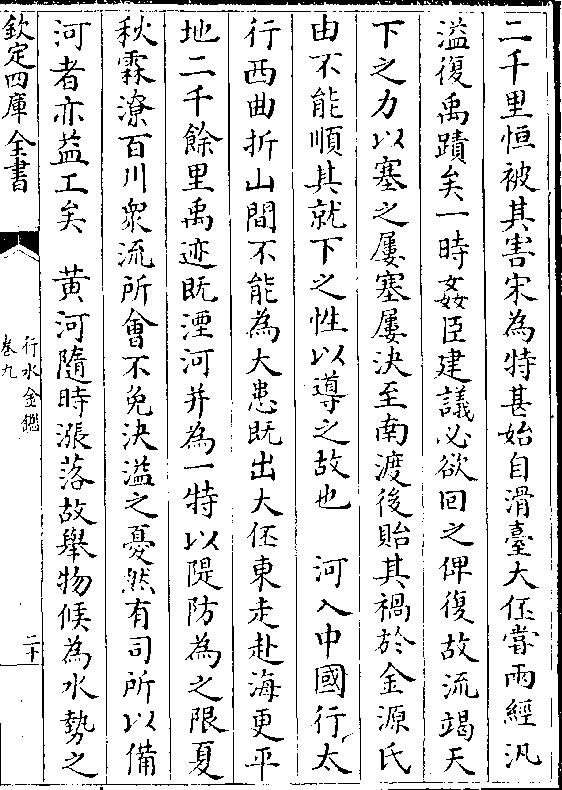 二千里恒被其害宋為特甚始自滑臺大伾嘗兩經汎
溢復禹蹟矣一時姦臣建議必欲回之俾復故流竭天
下之力以塞之屢塞屢決至南渡後貽其禍於金源氏
由不能順其就下之性以導之故也　河入中國行太
行西曲折山間不能為大患既出大伾東走赴海更平
地二千餘里禹迹既湮河并為一特以隄防為之限夏
秋霖潦百川衆流所會不免決溢之憂然有司所以備
河者亦益工矣　黃河隨時漲落故舉物候為水勢之
欽定四庫全書
行水金鑑
卷九
二十